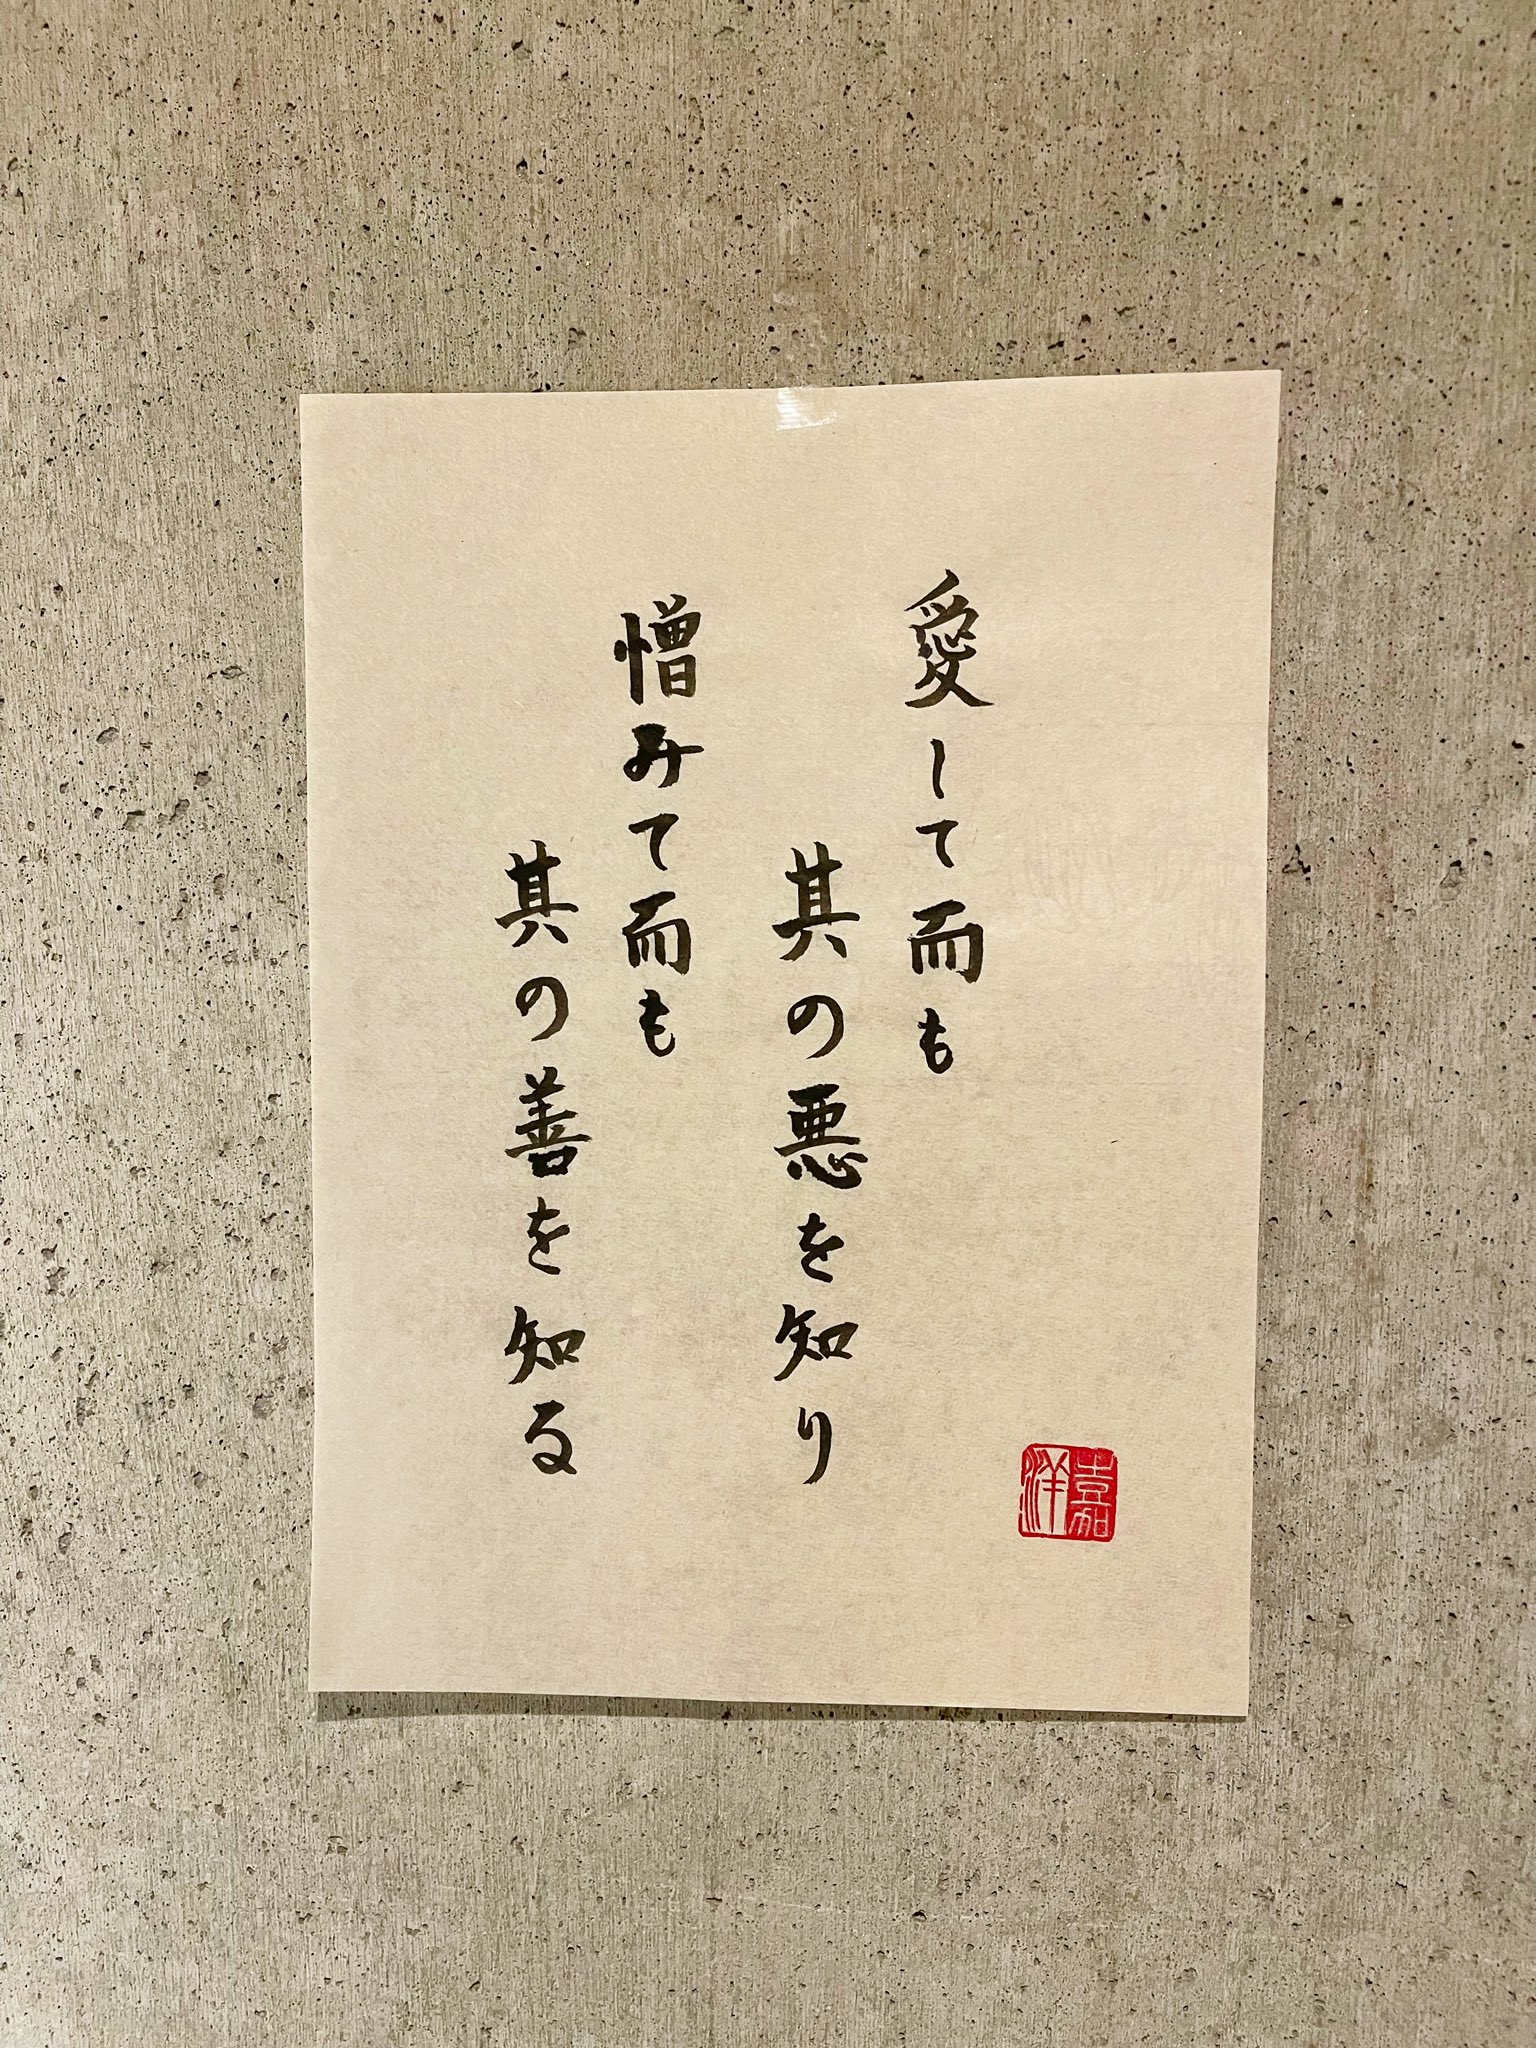 愛して而も
其の悪を知り
憎みて而も
其の善を知る
嘉洋